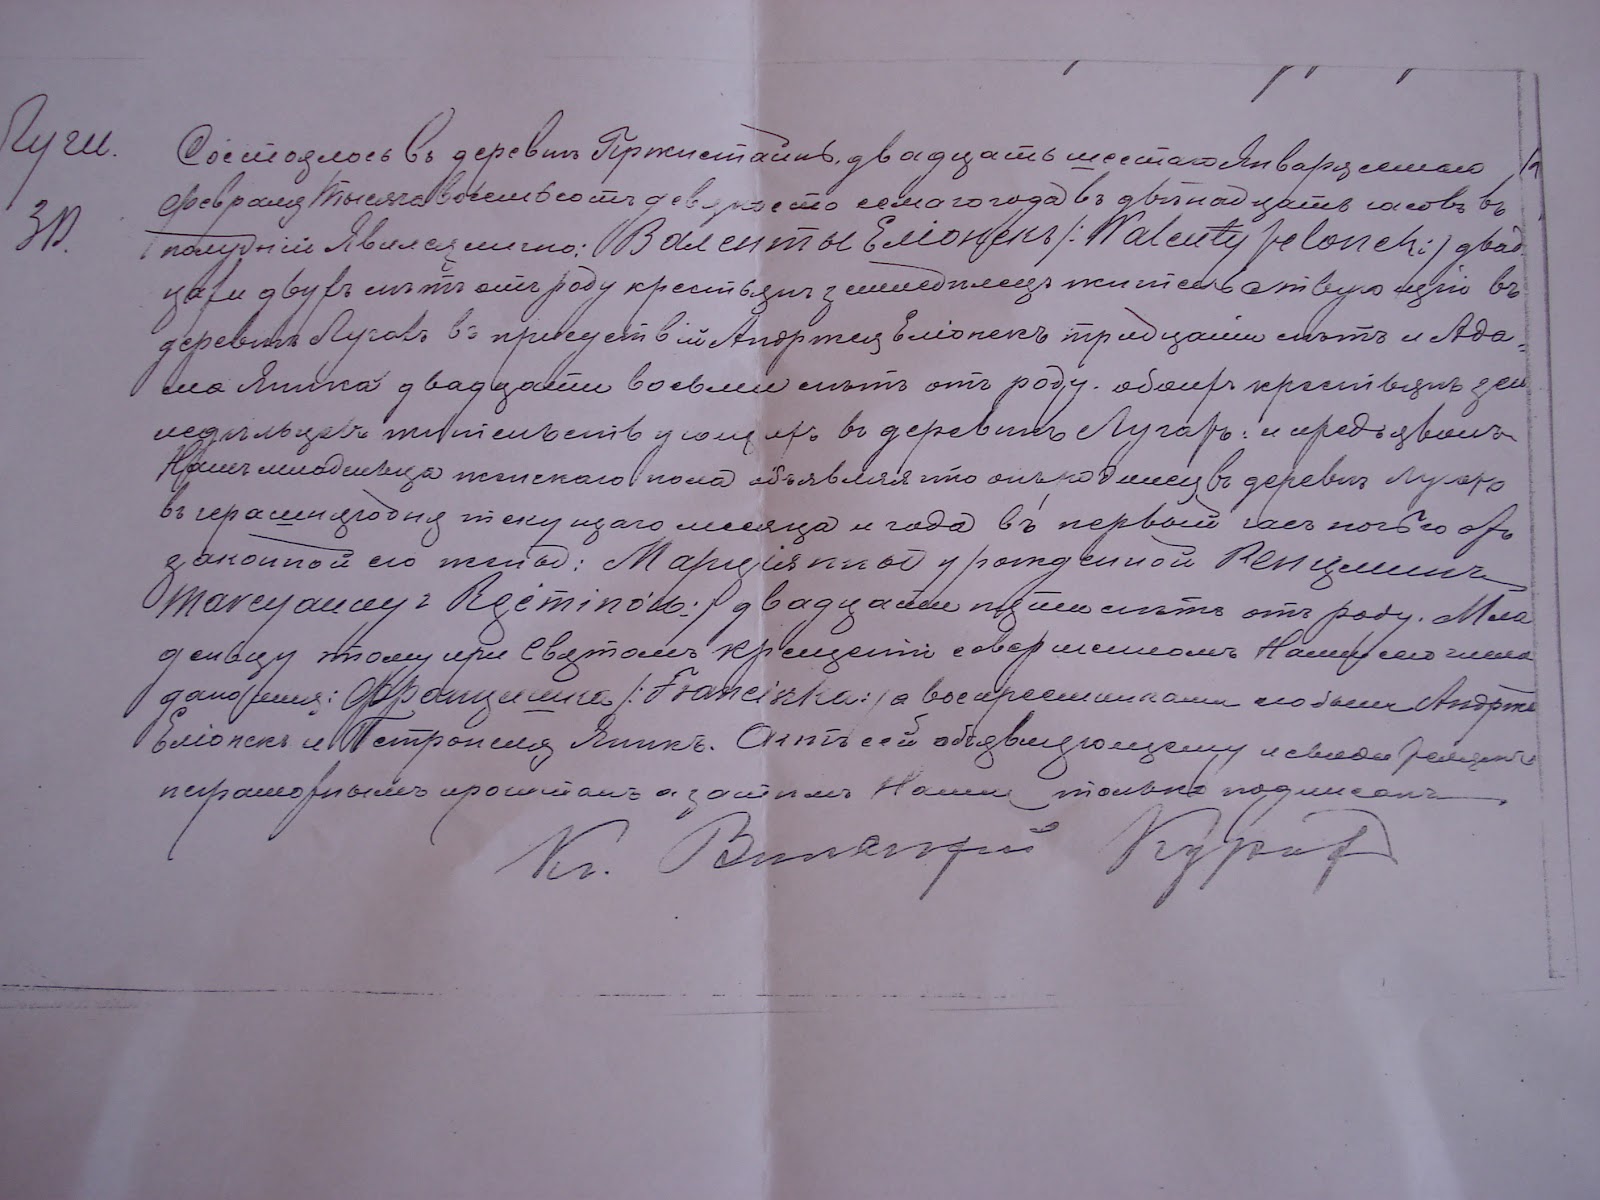 Луги.
30.
Состоялось въ деревнѣ Пржистайнь, двадцать шестаго Января седмаго
Февраля тысяча восемьсотъ девяносто седмаго года въ двѣнадцать часовъ въ
полудній Явился лично: Валенты Еліонекъ /: Walenty Jelonek :/ двад
цати двухъ лѣтъ отъ роду крестьянъ земледѣлецъ жительствующій въ
деревнѣ Лугахъ въ присуствій Андржея Еліонекъ тридцати лѣтъ и Ада-
ма Яника двадцати восьми лѣтъ отъ роду. обоихъ крестьянъ зем
ледѣльцахъ жительствующихъ въ деревнѣ Лугахъ: и предъявилъ
Намъ младенца женскаго пола объявляя что онъ родился въ деревнѣ Лугахъ
вчерашняго дня текущаго месяца и года въ первый часъ ночью отъ
законной его жены: Марціянны урожденной
Marcyanny z :/ двадцати пяти лѣтъ отъ роду. Мла
денцу этому при Святомъ Крещеніи совершенномъ Нами сего числа
дано имя: Францишка /: Franciszka :/ а воспреемниками его были Андрже
Еліонекъ и Петронеля Яникъ. Актъ сей объявляющему и свидетелямъ
неграмотнымъ прочитанъ а затѣмъ Нами только подписанъ
Кс.